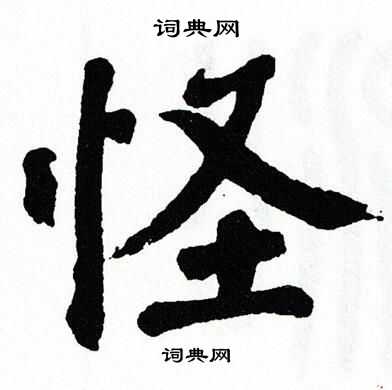 词典网
怪
词典网